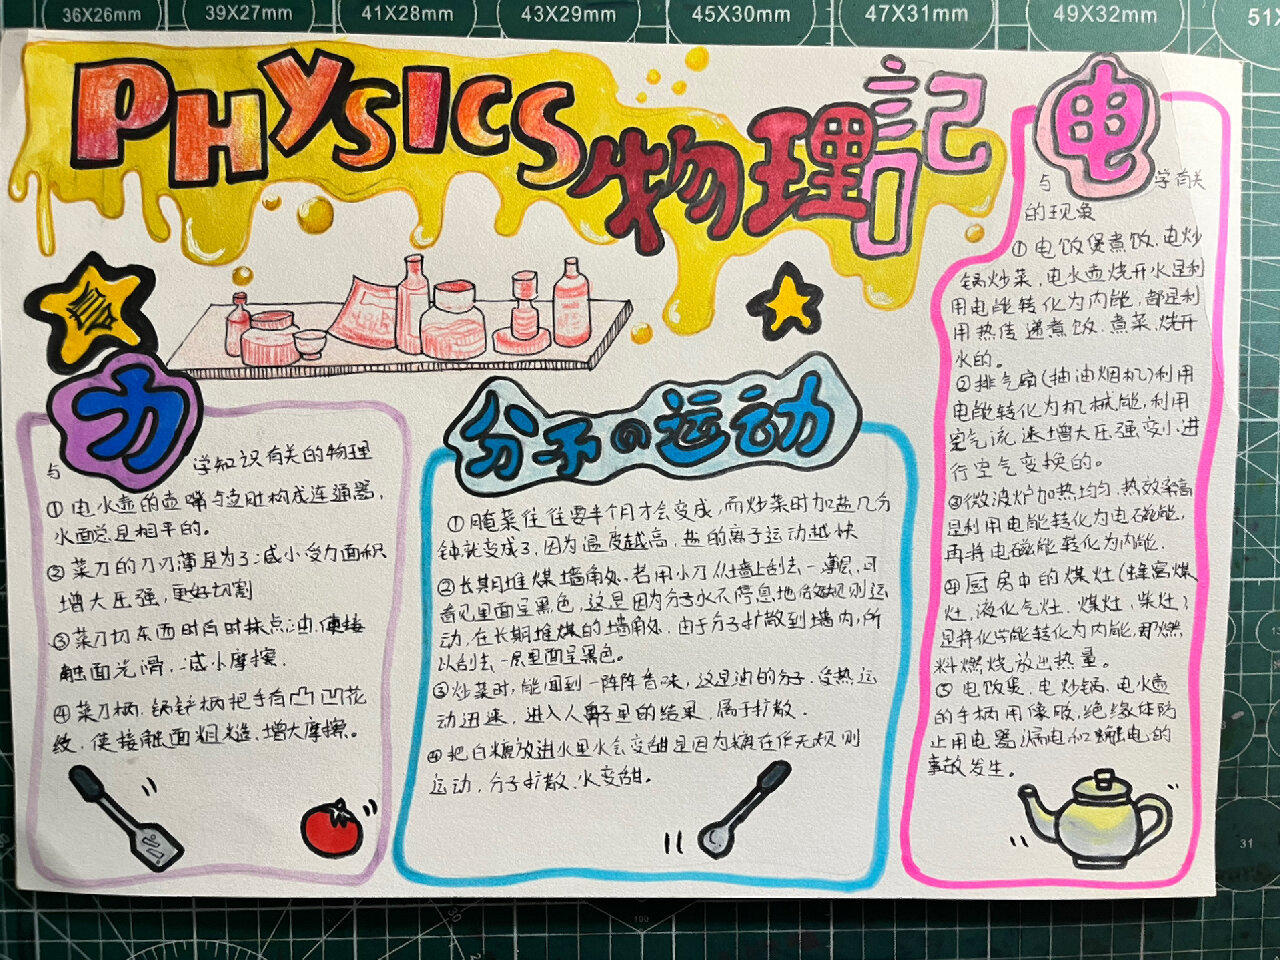 36X26mm
39X27mm
41X28mm
43X29mm
45X30mm
47X31mm
49X32mm
51X
PHYSICS物理日記
力
与 学知识有关的物理
①电水壶的壶嘴与壶肚构成连通器,
水面总是相平的。
②菜刀的刀刃薄是为了减小受力面积
增大压强,更好切割
③菜刀切东西时有时抹点油,使接
触面光滑,减小摩擦.
④菜刀柄、锅铲柄把手有凸凹花
纹,使接触面粗糙,增大摩擦。
分子の运动
①腌菜往往要半个月才会变咸,而炒菜时加盐几分
钟就变咸了,因为温度越高,盐的离子运动越快
②长期堆煤墙角处,若用小刀从墙上刮去一薄层,可
看见里面呈黑色,这是因为分子永不停息地做无规则运
动,在长期堆煤的墙角处,由于分子扩散到墙内,所
以刮去一层里面呈黑色。
③炒菜时,能闻到一阵阵香味,这是油的分子,受热运
动迅速,进入人鼻子里的结果,属于扩散.
④把白糖放进水里水会变甜是因为糖在作无规则
运动,分子扩散、水变甜。
电
与 学有关
的现象
①电饭煲煮饭,电炒
锅炒菜,电水壶烧开水是利
用电能转化为内能,都是利
用热传递煮饭、煮菜、烧开
水的。
②排气扇(抽油烟机)利用
电能转化为机械能,利用
空气流速增大压强变小进
行空气变换的。
③微波炉加热均匀,热效率高
是利用电能转化为电磁能,
再将电磁能转化为内能.
④厨房中的煤灶(蜂窝煤
灶,液化气灶,煤灶,柴灶)
是将化学能转化为内能,即燃
料燃烧放出热量。
⑤电饭煲、电炒锅、电水壶
的手柄用橡胶,绝缘体防
止用电器漏电和触电的
事故发生。
31